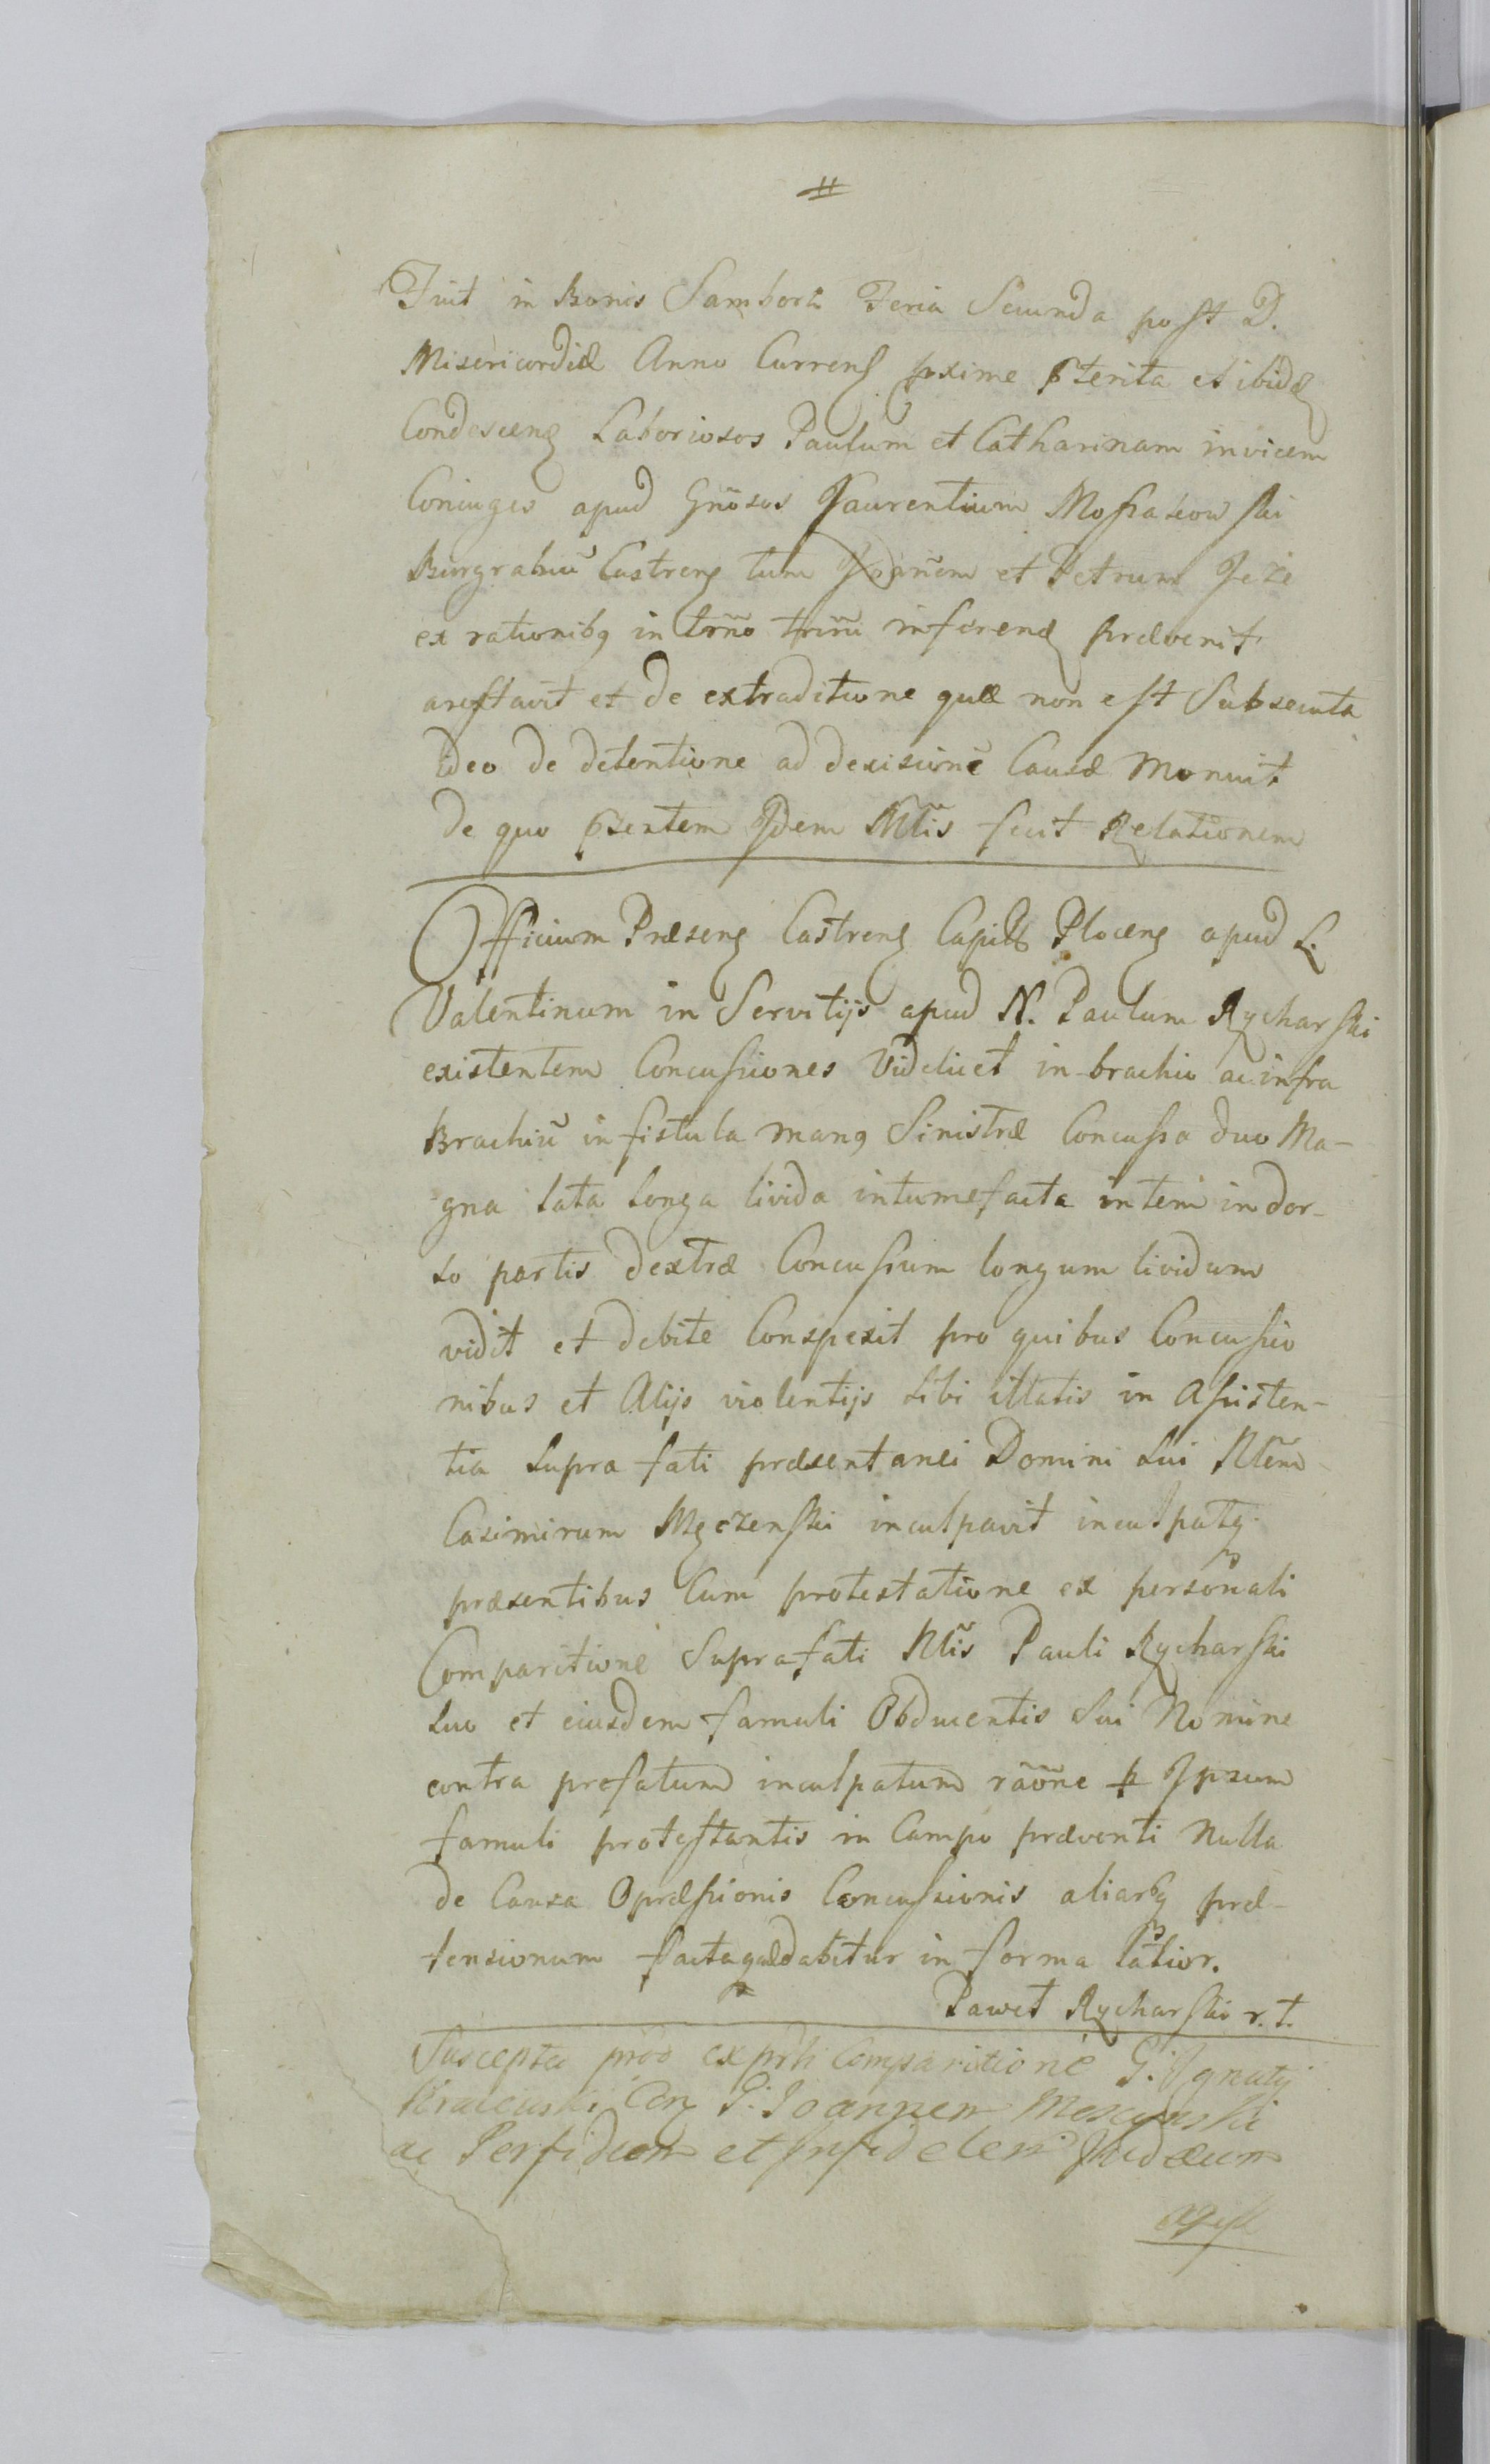 Fuit in Bonis Sambora Feria Secunda post D.
Misericordiæ Anno Currenȝ pxime pterita et ibidȝ
Condescenȝ Laboriosos Paulum et Catharinam invicem
Coniuges apud Gñosos Laurentium Mossakowski
Burgrabiũ Castrenȝ tum Joañem et Petrum Jeże
ex rationibȝ in trño trmi inferenȝ prævenit
arestavit et de extraditione quæ non est Subsecuta
ideo de detentione ad decisionē Causæ Monuit
de quo pzentem Idem Mlĩs fecit Relationem
Officium Præsenȝ Castrenȝ Capitl Plocenȝ apud L.
Valentinum in Servitijs apud N. Paulum Rycharski
existentem Concussiones Videlicet in brachio ac infra
Brachiũ in fistula manȝ Sinistræ Concussa duo Ma-
gna lata longa livida intumefacta intem in dor-
so partis dextræ Concussum longum lividum
vidit et debite Conspexit pro quibus Concussio
nibus et Alijs violentijs sibi illatis in Assisten-
tia supra fati præsentanei Domini sui Nlem
Casimirum Męczenski inculpavit inculpatȝ
præsentibus Cum protestatione ex personali
Comparitione Suprafati Nlis Pauli Rycharski
suo et eiusdem famuli Obducentis Sui Nomine
contra prefatum inculpatum rãone p Ipsum
famuli protestantis in Campo præventi Nulla
de Causa Opræssionis Concussionis aliarȝ præ-
tensionum factaquædabitur in forma latior.
Paweł Rycharski r.t.
Suscepta pros ex prli Comparitione G. Ignatij
Kraiewski Con G. Joannem
ac Perfidum et Infidelem Judæum